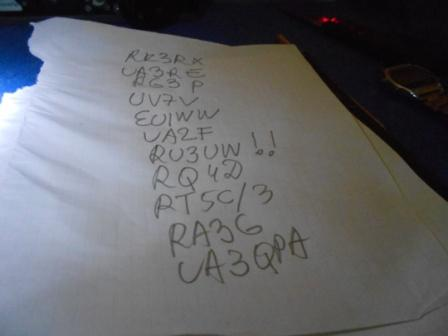 RK3RX
UA3RE
RG3P
UV7V
EU1WW
UA2F
RU3UW!!
RQ4D
RT5C/3
RA3G
UA3QPA